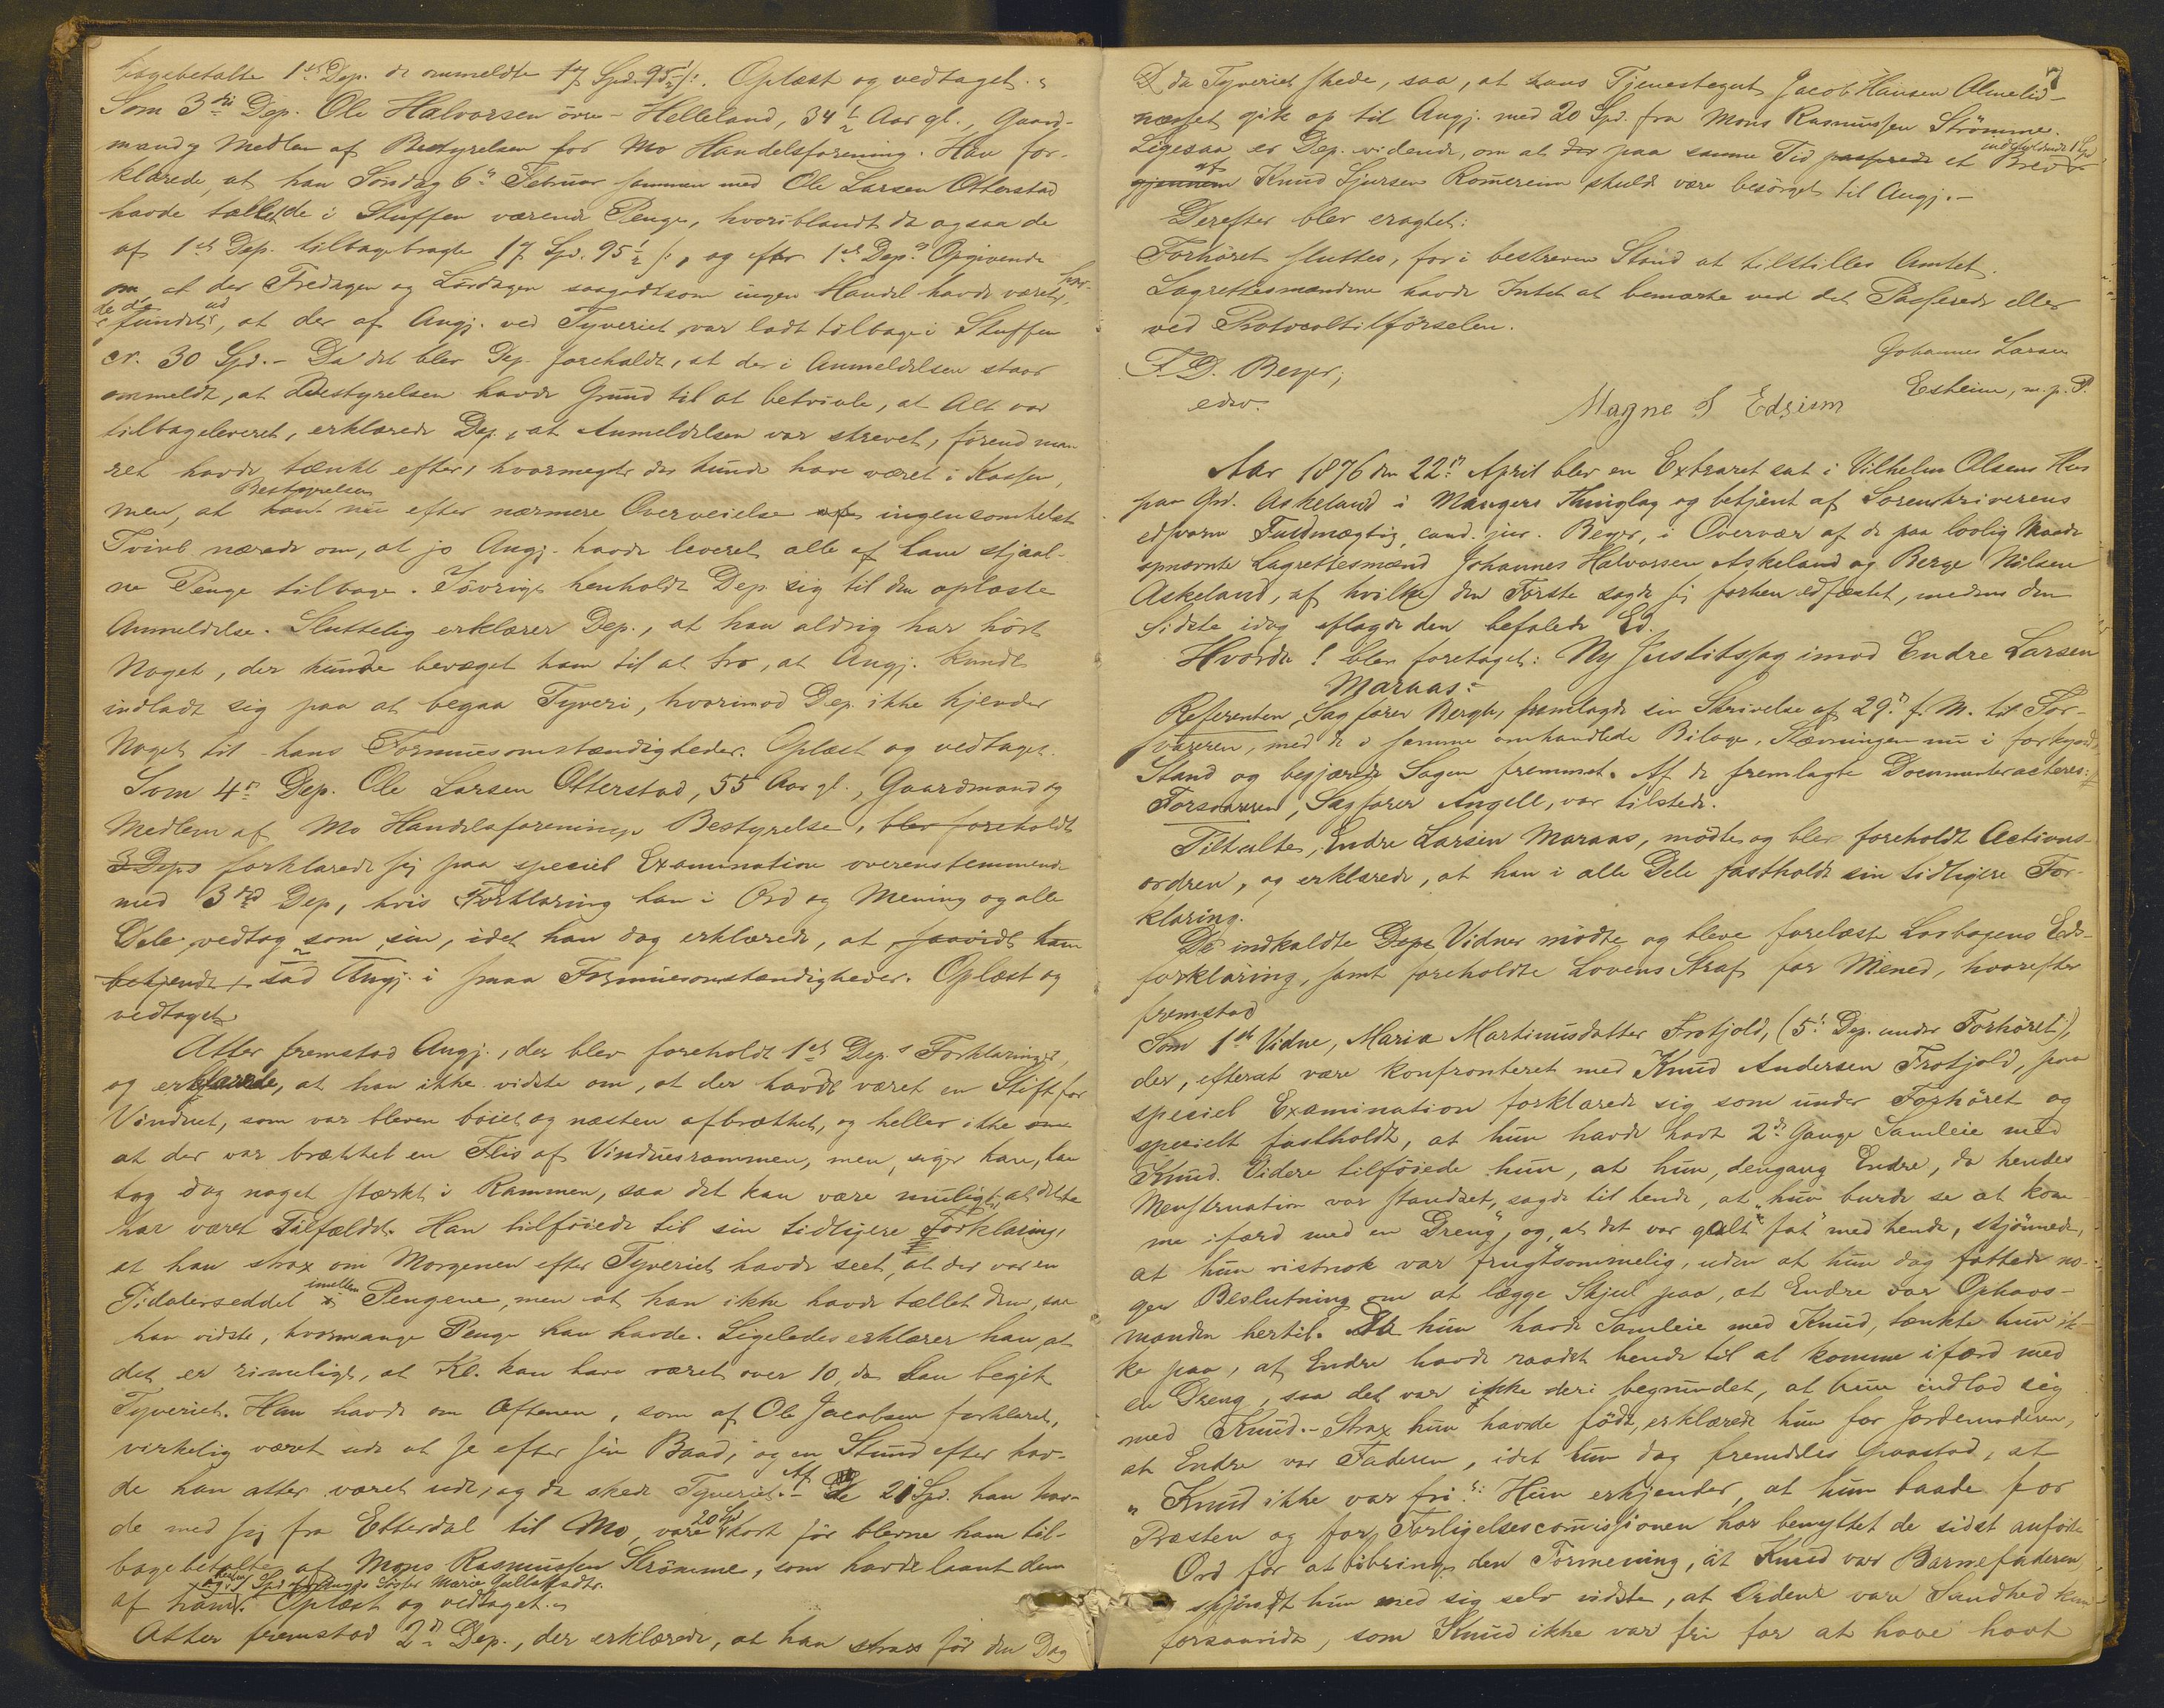 bagebetalte 1ste Dep. de ommeldte 17 Spd. 95½ ſ. Oplæst og vedtaget.
Som 3die Dep. Ole Halvorsen övre-Helleland, 34½ Aar gl., Gaard-
mand og Medlem af Bestyrelsen for Mo Handelsforening. Han for-
klarede, at han Söndag 6te Februar sammen med Ole Larsen Otterstad
havde tællet de i Skuffen værende Penge, hvoriblandt da ogsaa de
af 1ste Dep. tilbagebragte 17 Spd. 95½ ſ., og efter 1ste Dep.s Opgivende
om, at der Fredagen og Lördagen saagodtsom ingen Handel havde været,
de da fundet ud, at der af Angj. ved Tyveriet var ladt tilbage i Skuffen
cr. 30 Spd. - Da det blev Dep. foreholdt, at der i Anmeldelsen staar
ommeldt, at Bestyrelsen havde Grund til at betvivle, at Alt var
tilbageleveret, erklærede Dep., at Anmeldelsen var skrevet, förend man
ret havde tænkt efter, hvormeget der kunde have været i Kassen,
men, at Bestyrelsen nu efter nærmere Overveielse ingensomhelst
Tvivl nærede om, at jo Angj. havde leveret alle af ham stjaal-
ne Penge tilbage. Iövrigt henholdt Dep. sig til den oplæste
Anmeldelse. Sluttelig erklærer Dep., at han aldrig har hört
Noget, der kunde bevæget ham til at tro, at Angj. kunde
indladt sig paa at begaa Tyveri, hvorimod Dep. ikke kjender
Noget til hans Formuesomstændigheder. Oplæst og vedtaget.
Som 4de Dep. Ole Larsen Otterstad, 55 Aar gl., Gaardmand og
Medlem af Mo Handelsforenings Bestyrelse, blev foreholdt
3 Deps forklarede sig paa speciel Examination overensstemmende
med 3die Dep., hvis Forklaring han i Ord og Mening og alle
Dele vedtog som sin, idet han dog erklærede, at saavidt ham
bekjendt sad Angj. i smaa Formuesomstændigheder. Oplæst og
vedtaget.
Atter fremstod Angj., der blev foreholdt 1ste Dep.s Forklaringer,
og erklærede, at han ikke vidste om, at der havde været en Stift for
Vinduet, som var bleven böiet og næsten afbrættet, og heller ikke om
at der var brættet en Flis af Vinduesrammen, men, siger han, han
tog dog noget stærkt i Rammen, saa det kan være muligt, at dette
har været Tilfældet. Han tilföiede til sin tidligere Forklaring,
at han strax om Morgenen efter Tyveriet havde seet, at der var en
Tidalerseddel imellem Pengene, men at han ikke havde tællet dem, saa
han vidste, hvormange Penge han havde. Ligeledes erklærer han, at
det er rimeligt, at Kl. kan have været over 10, da han begik
Tyveriet. Han havde om Aftenen, som af Ole Jacobsen forklaret,
virkelig været ude at se efter sin Baad, og en Stund efter hav-
de han atter været ude, og da skede Tyveriet. - Af de 21 Spd. han hav-
de med sig fra Etterdal til Mo, vare 20 Spd kort för blevne ham til-
bagebetalte af Mons Rasmussen Strömme, som havde laant dem
af ham, og 1 Spd af Angjs Söster Maria
Oplæst og vedtaget.
Atter fremstod 2den Dep., der erklærede, at han strax för den Dag
7
D da Tyveriet skede, saa, at hans Tjenestegut Jacob Hansen Almelid-
næsset gik op til Angj. med 20 Spd. fra Mons Rasmussen Strömme.
Ligesaa er Dep. vidende, om at der paa samme Tid passerede et Brev indeholdende 1 Spd
gjennem af Knud Sjursen Romereim skulde være besörget til Angj. -
Derefter blev eragtet:
Forhöret sluttes, for i bestreven Stand at tilstilles Amtet.
Lagrettesmændene havde Intet at bemærke ved det Passerede eller
ved Protocoltilförselen.
F. D. Beyer,
edsv.
Johannes Larsen
Esheim, m. p. P.
Magne S Edsiem
Aar 1876 den 22de April blev en Extraret sat i Vilhelm Olsens Hus
paa Grd. Askeland i Mangers Thinglag og betjent af Sorenskriverens
edsvorne Fuldmægtig, cand. jur. Beyer, i Overvær af de paa lovlig Maade
opnævnte Lagrettesmænd Johannes Halvorsen Askeland og Berge Nilsen
Askeland, af hvilke den Förste sagde sig forhen edfæstet, medens den
Sidste idag aflagde den befalede Ed.
Hvorda! blev foretaget: Ny Justitssag imod Endre Larsen
Maraas:
Referenten, Sagförer Bergh, fremlagde sin Skrivelse af 29de f. M. til For-
svareren, med de i samme omhandlede Bilage, Stævningen nu i forkyndt
Stand og begjærede Sagen fremmet. Af de fremlagte Documenter acteres:
Forsvareren, Sagförer Angell, var tilstede.
Tiltalte, Endre Larsen Maraas, mödte og blev foreholdt Actions-
ordren, og erklærede, at han i alle Dele fastholdt sin tidligere For-
klaring.
De indkaldte Deps Vidner mödte og bleve forelæste Lovbogens Eds-
forklaring, samt foreholdte Lovens Straf for Mened, hvorefter
fremstod
Som 1ste Vidne, Maria Martinusdatter Frotjold, (5te Dep. under Forhöret),
der, efterat være konfronteret med Knud Andersen Frotjold, paa
speciel Examination forklarede sig som under Forhöret og
specielt fastholdt, at hun havde havt 2de Gange Samleie med
Knud. Videre tilföiede hun, at hun, dengang Endre, da hendes
Menstruation var standset, sagde til hende, at „hun burde se at kom-
me ifærd med en Dreng", og, at det var galt „fat" med hende, skjönnede,
at hun vistnok var frugtsommelig, uden at hun dog fattede no-
gen Beslutning om at lægge Skjul paa, at Endre var Ophavs-
manden hertil. Da hun havde Samleie med Knud, tænkte hun ik-
ke paa, at Endre havde raadet hende til at komme ifærd med
en Dreng, saa det var ikke deri begrundet, at hun indlod sig
med Knud. - Strax hun havde födt, erklærede hun for Jordemoderen,
at Endre var Faderen, idet hun dog fremdeles paastod, at
„Knud ikke var fri". Hun erkjender, at hun baade for
Præsten og for Forligelsescomissionen har benyttet de sidst anförte
Ord for at bibringe den Formening, at Knud var Barnefaderen,
skjöndt hun med sig selv vidste, at Ordene vare Sandhed kun
forsaavidt, som Knud ikke var fri for at have havt